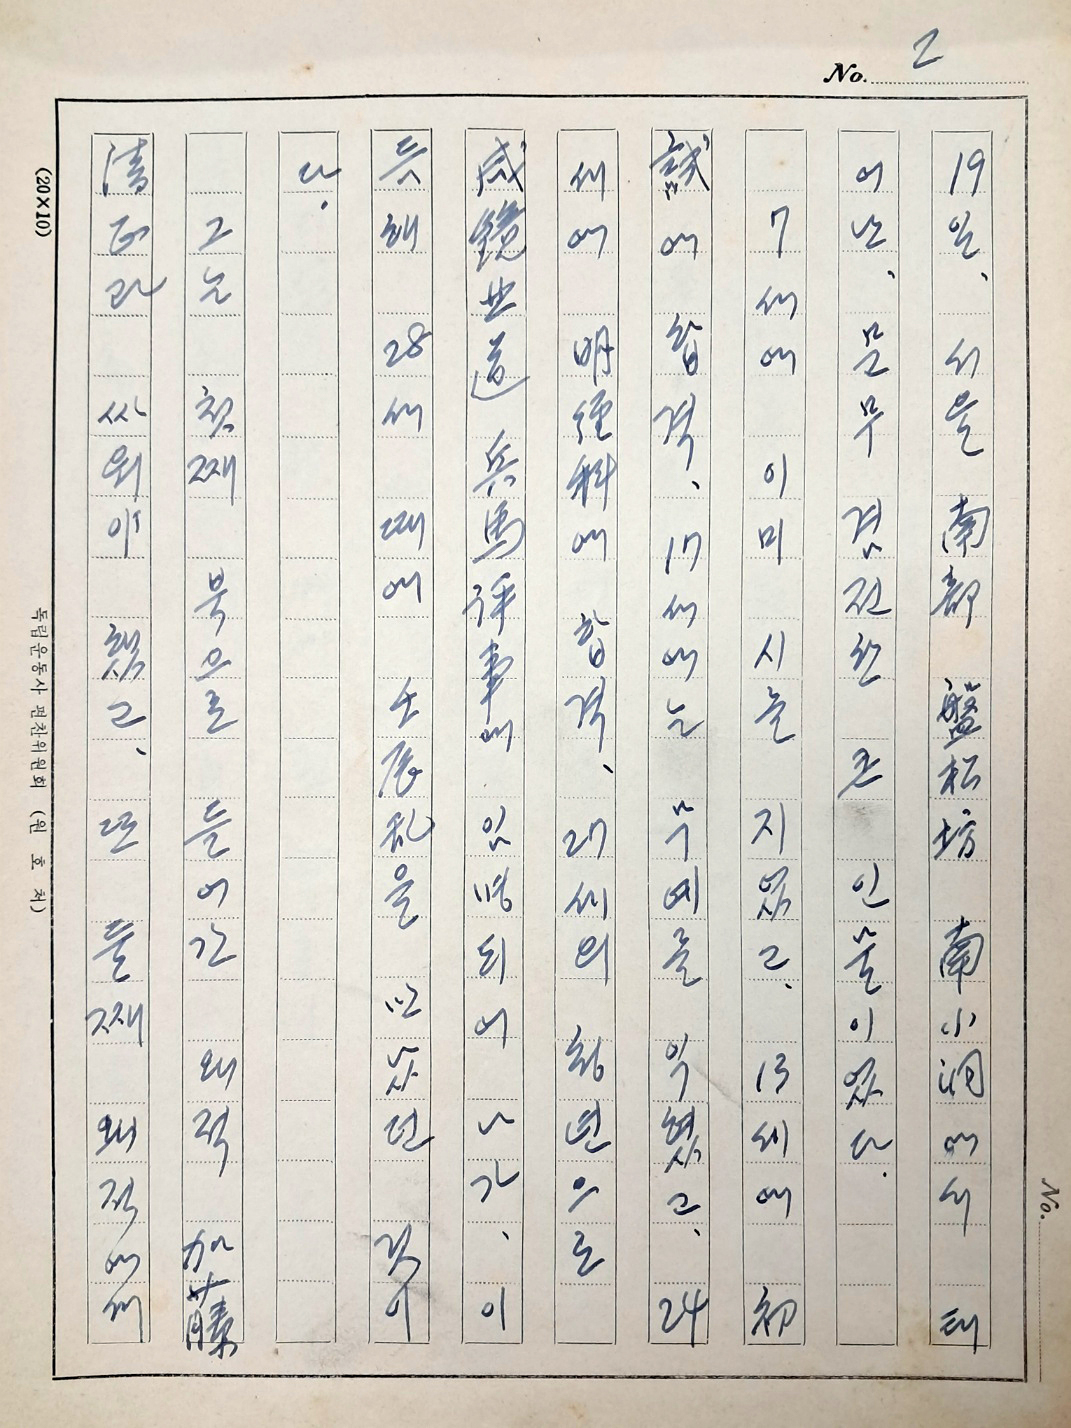 No. 2
19일, 서울 南部 盤松坊 南小洞에서 태
어난, 문무 겸전한 큰 인물이었다.
7세에 이미 시를 지었고, 13세에 初
試에 합격, 17세에는 무예를 익혔고, 24
세에 明經科에 합격, 27세의 청년으로
咸鏡北道 兵馬評事에 임명되어 나가, 이
듬해 28세 때에 壬辰乱을 만났던 것이
다.
그는 첫째 북으로 들어간 왜적 加藤
清正과 싸워야 했고, 또 둘째 왜적에게
(20×10)
독립운동사 편찬위원회 (원호처)
No.